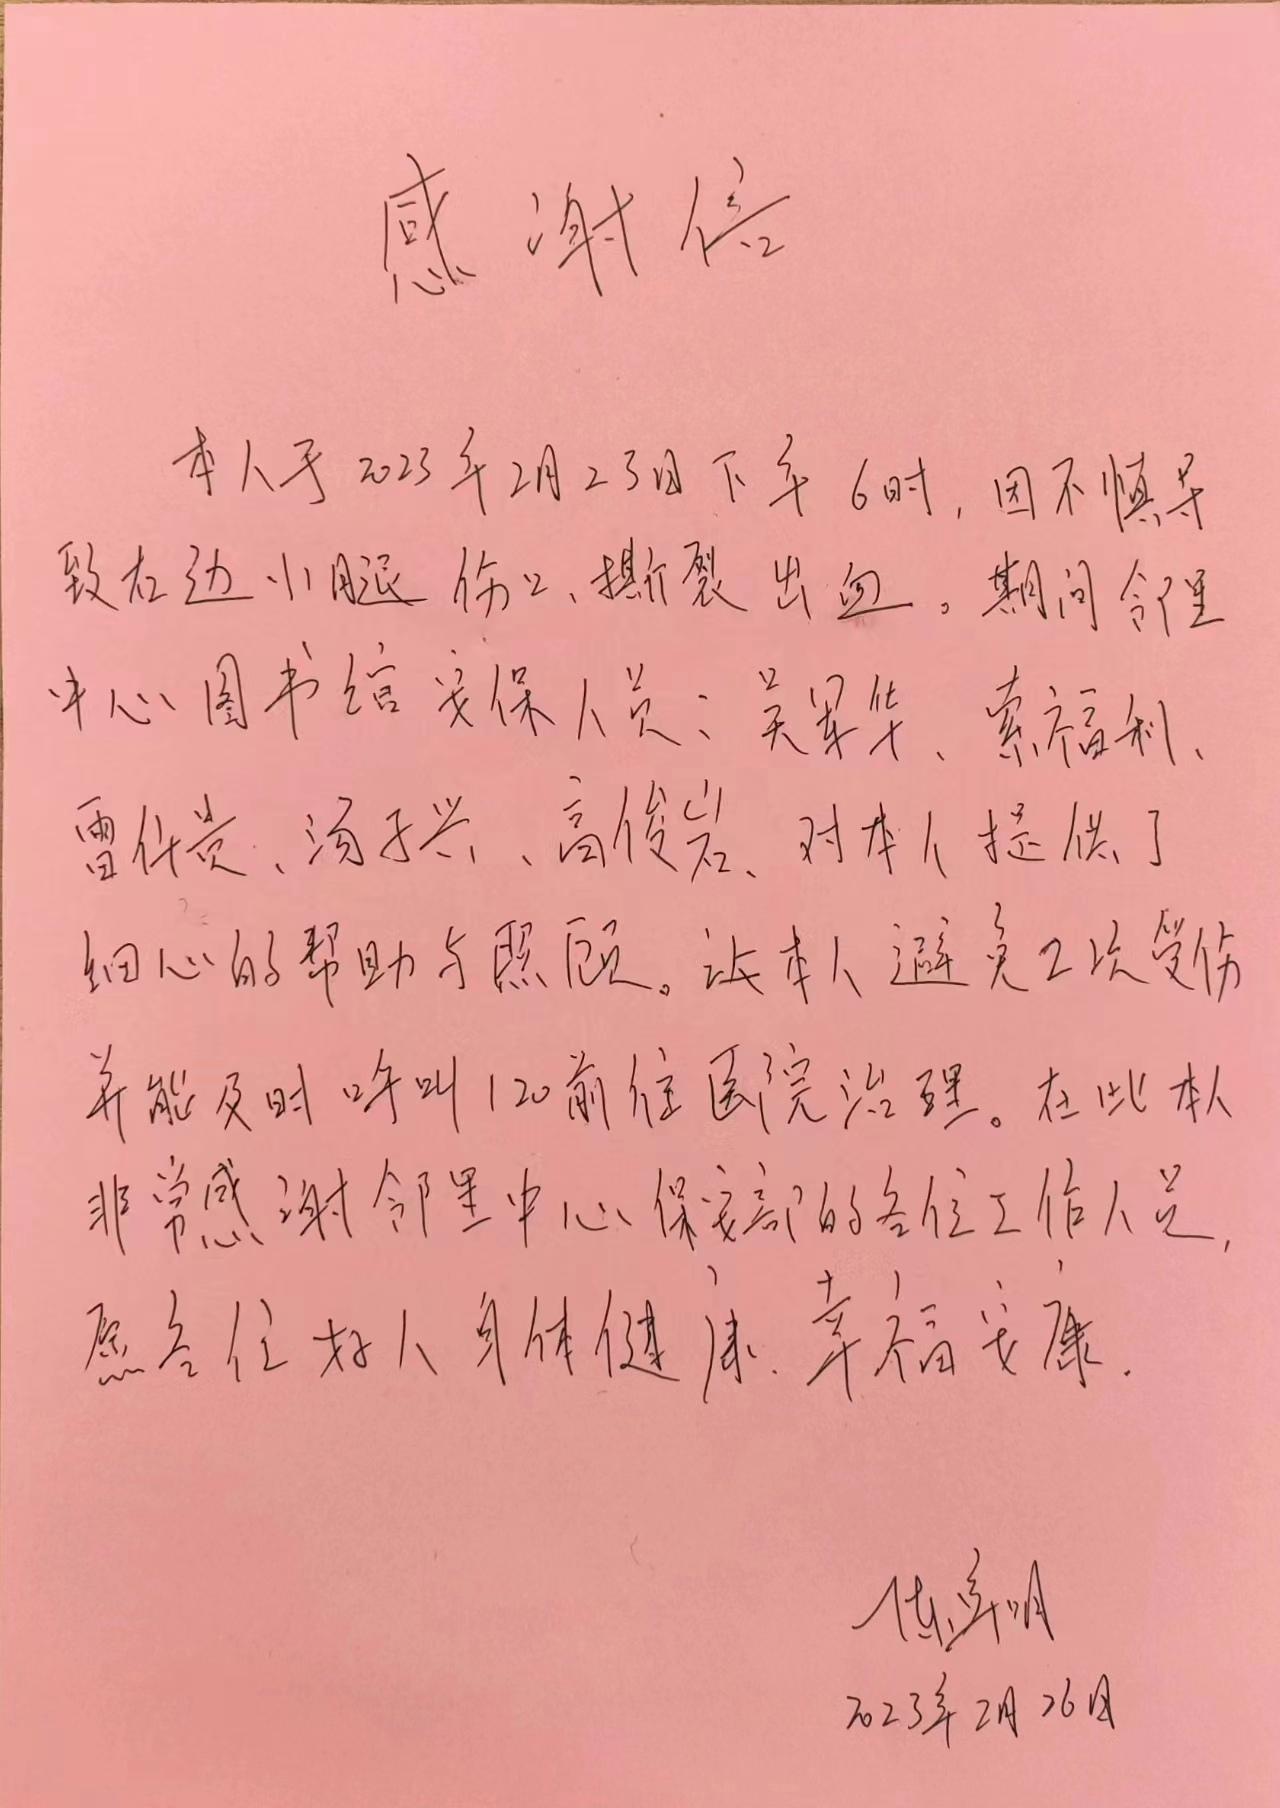 感谢信
本人于2023年2月23日下午6时,因不慎导
致左边小腿伤口、撕裂出血。期间邻里
中心图书馆安保人员:吴军华、索福利、
雷仕贵、汤子兴、高俊岩、对本人提供了
细心的帮助与照顾。让本人避免2次受伤
并能及时呼叫120前往医院治理。在此本人
非常感谢邻里中心保安部的各位工作人员,
愿各位好人身体健康、幸福安康.
2023年2月26日